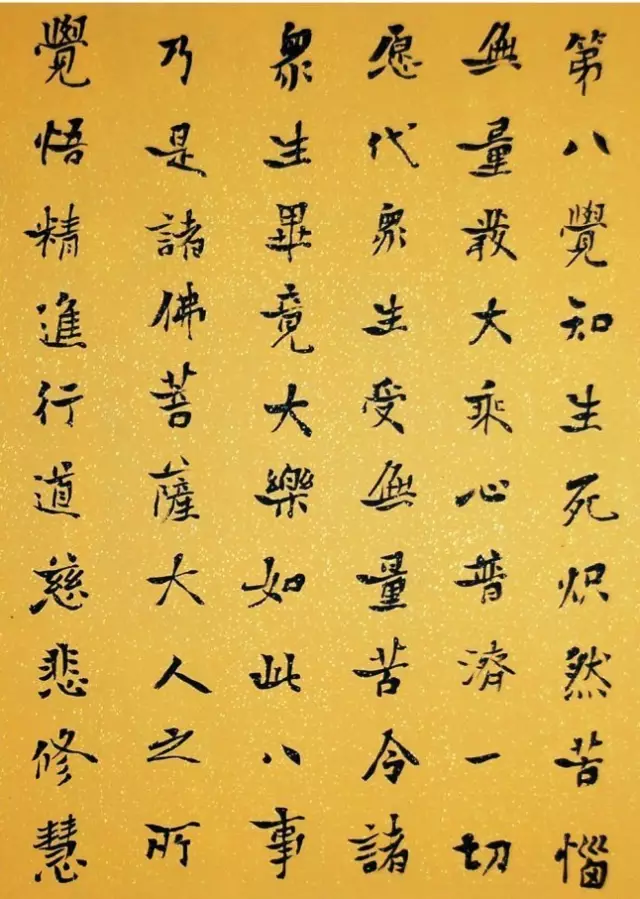 第八覺知生死炽然苦惱
無量發大乘心普濟一切
愿代衆生受無量苦令諸
衆生畢竟大樂如此八事
乃是諸佛菩薩大人之所
覺悟精進行道慈悲修慧